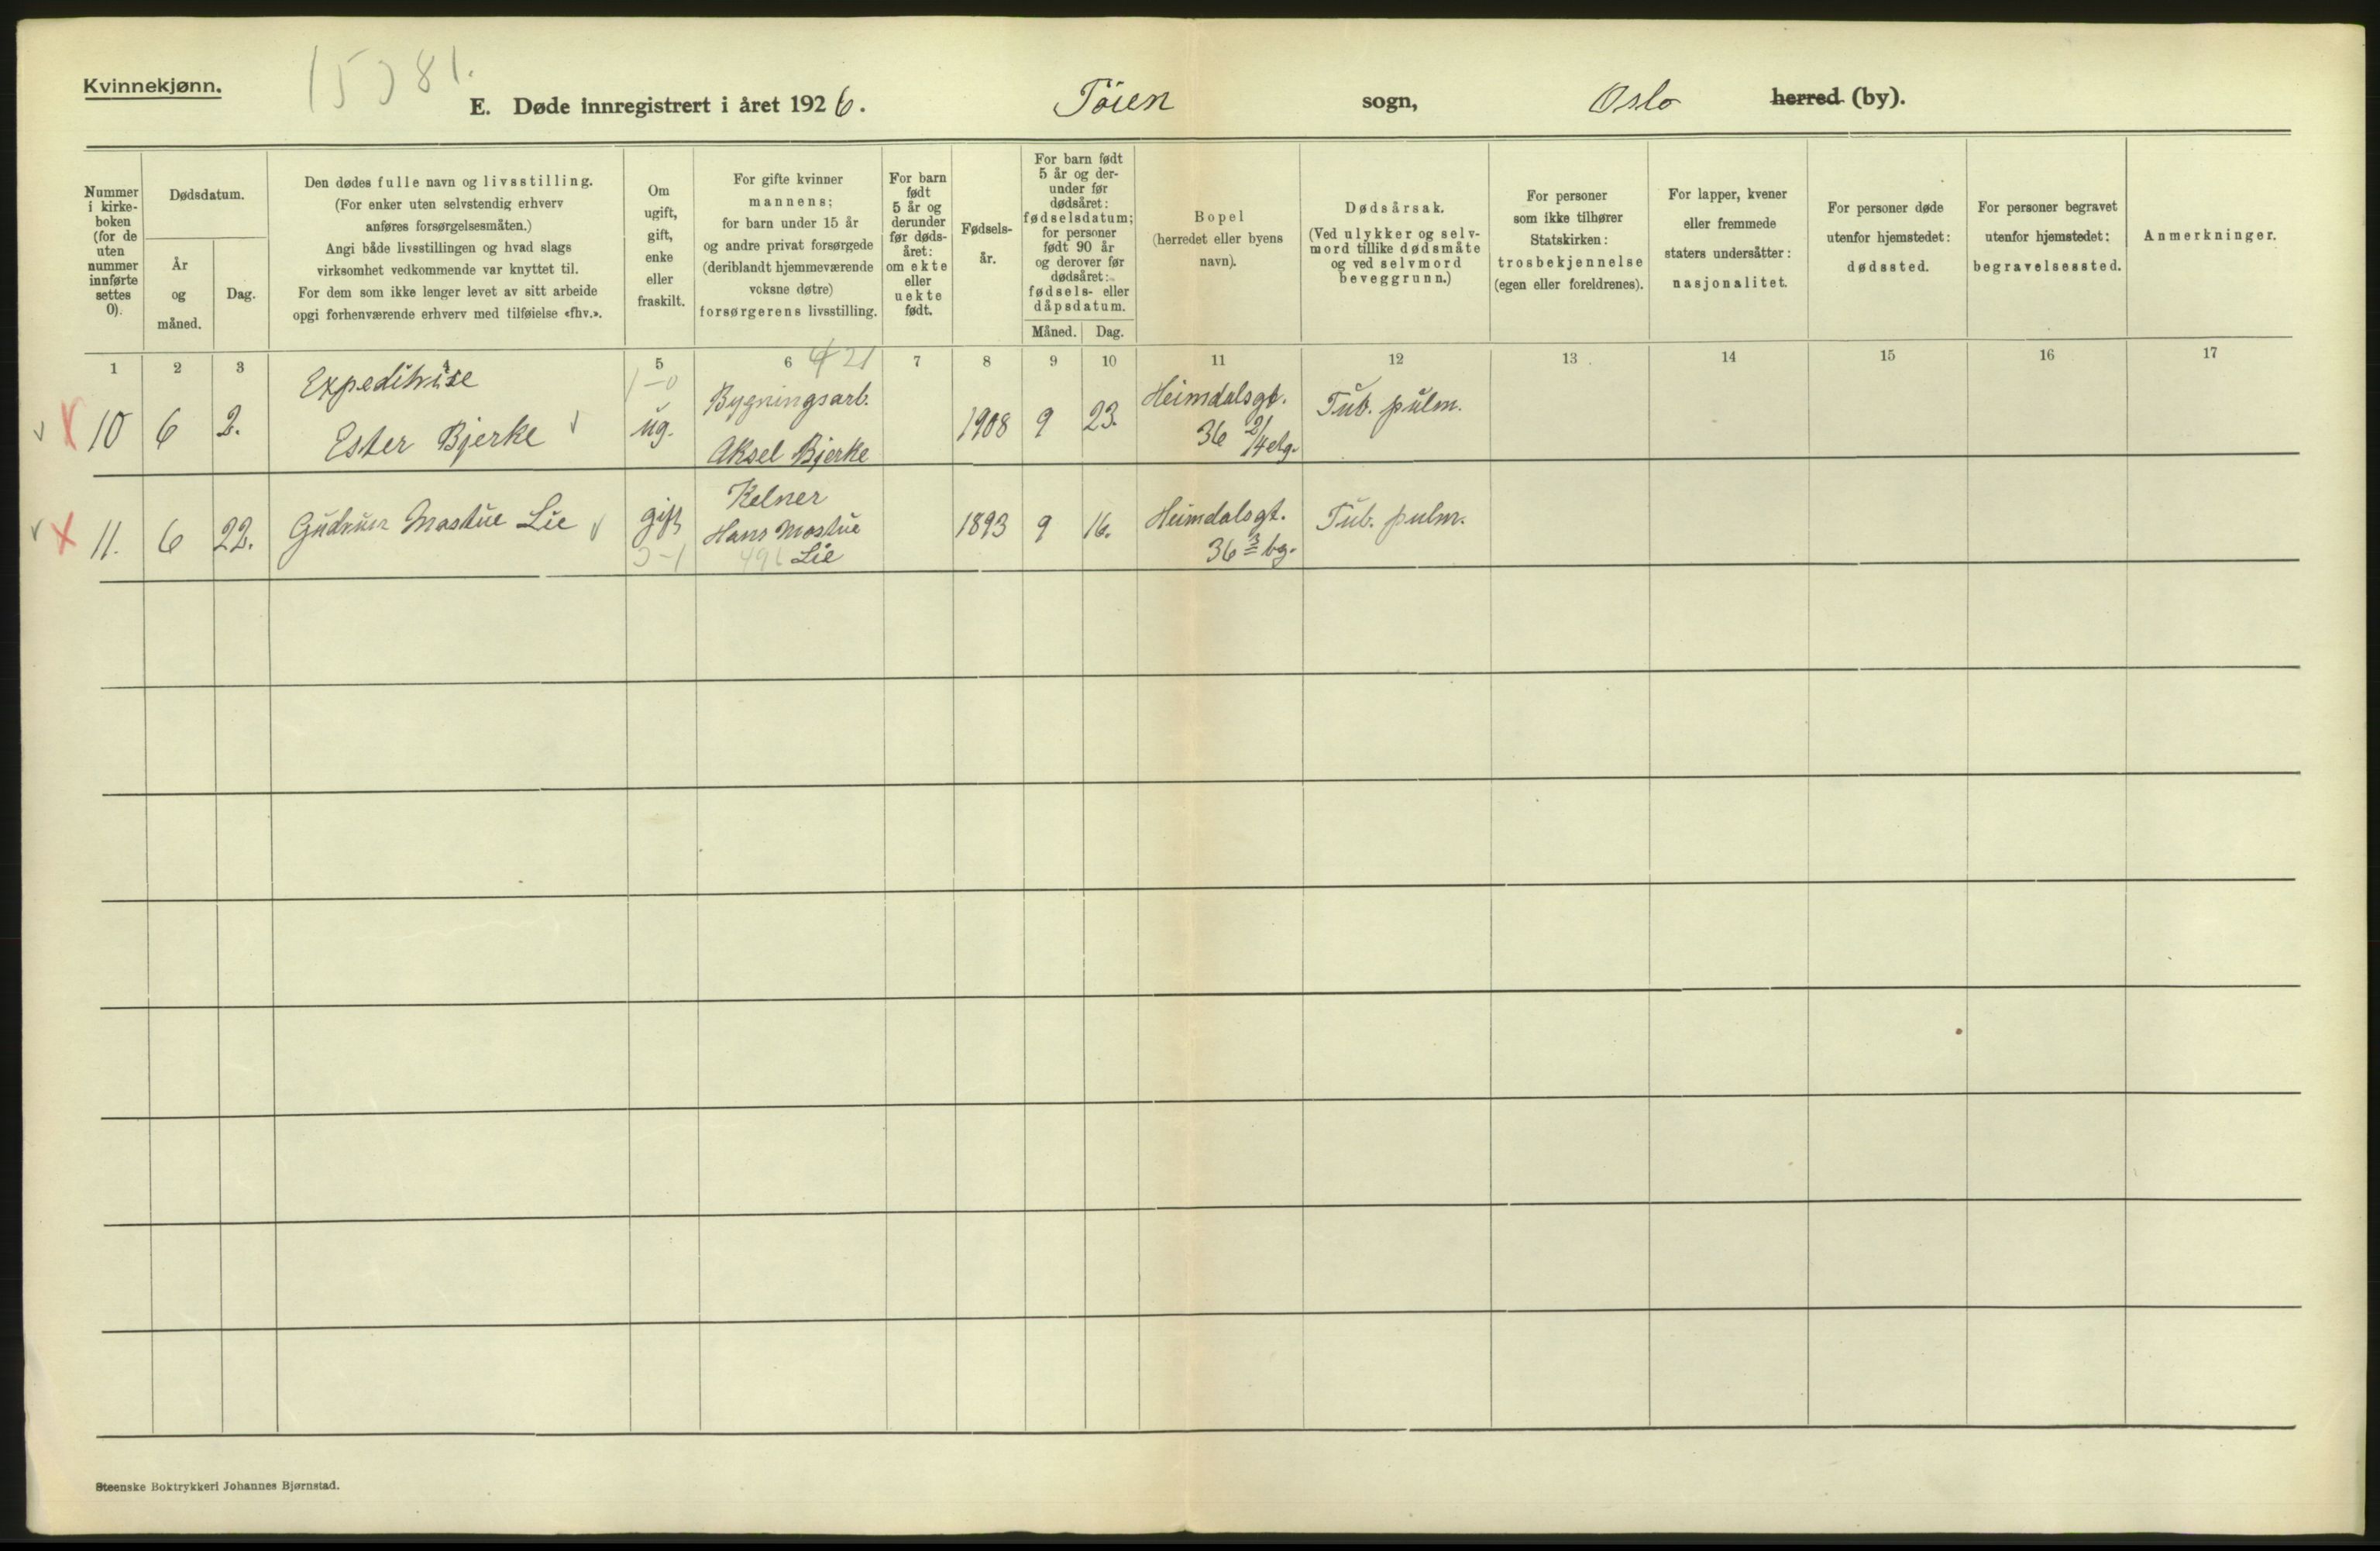 Kvinnekjønn.
15381.
E. Døde innregistrert i året 1926. Töien sogn, Oslo herred (by).
Nummer i kirke- boken (for de uten nummer innførte settes 0).
Dødsdatum.
År og måned.
Dag.
Den dødes fulle navn og livsstilling.
(For enker uten selvstendig erhverv
anføres forsørgelsesmåten.)
Angi både livsstillingen og hvad slags
virksomhet vedkommende var knyttet til.
For dem som ikke lenger levet av sitt arbeide
opgi forhenværende erhverv med tilføielse «fhv.».
Om
ugift,
gift,
enke
eller
fraskilt.
For gifte kvinner
mannens;
for barn under 15 år
og andre privat forsørgede
(deriblandt hjemmeværende
voksne døtre)
forsørgerens livsstilling.
For barn
født
5 år og
derunder
før døds-
året:
om ekte
eller
uekte
født.
Fødsels-
år.
For barn født
5 år og der-
under før
dødsåret:
fødselsdatum;
for personer
født 90 år
og derover før
dødsåret:
fødsels- eller
dåpsdatum.
Måned. Dag.
Bopel
(herredet eller byens
navn).
Dødsårsak.
(Ved ulykker og selv-
mord tillike dødsmåte
og ved selvmord
beveggrunn.)
For personer
som ikke tilhører
Statskirken:
trosbekjennelse
(egen eller foreldrenes).
For lapper, kvener
eller fremmede
staters undersåtter:
nasjonalitet.
For personer døde
utenfor hjemstedet:
dødssted.
For personer begravet
utenfor hjemstedet:
begravelsessted.
Anmerkninger.
1 2 3 5 6 7 8 9 10 11 12 13 14 15 16 17
421
Expeditrise 1-0 Bygningsarb. Heimdalsgt. Tub. pulm.
10 6 2. Ester Bjerke ug. Aksel Bjerke 1908 9 23. 36 2/4 etg.
11. 6 22. Gudrun Mastue Lie gift Kelner 1893 9 16. Heimdalsgt. Tub. pulm.
Hans Mostue
0-1 491 Lie 36 3 bg.
Steenske Boktrykkeri Johannes Bjørnstad.